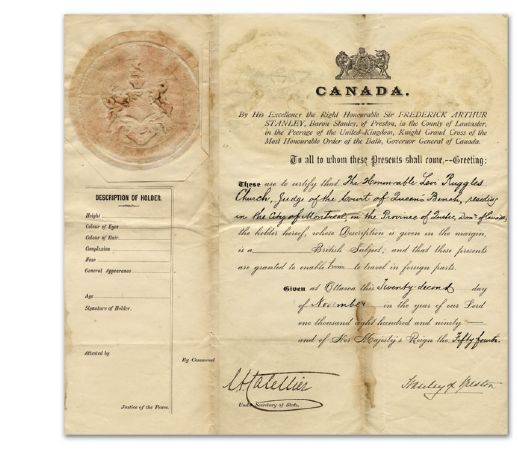 CANADA.
By His Excellency the Right Honourable Sir FREDERICK ARTHUR
STANLEY, Baron Stanley, of Preston, in the County of Lancaster,
in the Peerage of the United-Kingdom, Knight Grand Cross of the
Most Honourable Order of the Bath, Governor General of Canada.
To all to whom these Presents shall come,--Greeting:
These are to certify that The Honourable Levi Ruggles
Church, Judge of the Court of Queen's Bench, residing
in the City of Montreal, in the Province of Quebec, Dom. of Canada,
the holder hereof, whose Description is given in the margin,
is a British Subject; and that these presents
are granted to enable him to travel in foreign parts.
Given at Ottawa this Twenty-second day
of November in the year of our Lord
one thousand eight hundred and ninety
and of Her Majesty's Reign the Fifty fourth.
DESCRIPTION OF HOLDER.
Height
Colour of Eyes
Colour of Hair
Complexion
Face
General Appearance
Age
Signature of Holder.
Attested by
Justice of the Peace.
By Command
Under Secretary of State.
Stanley of Preston